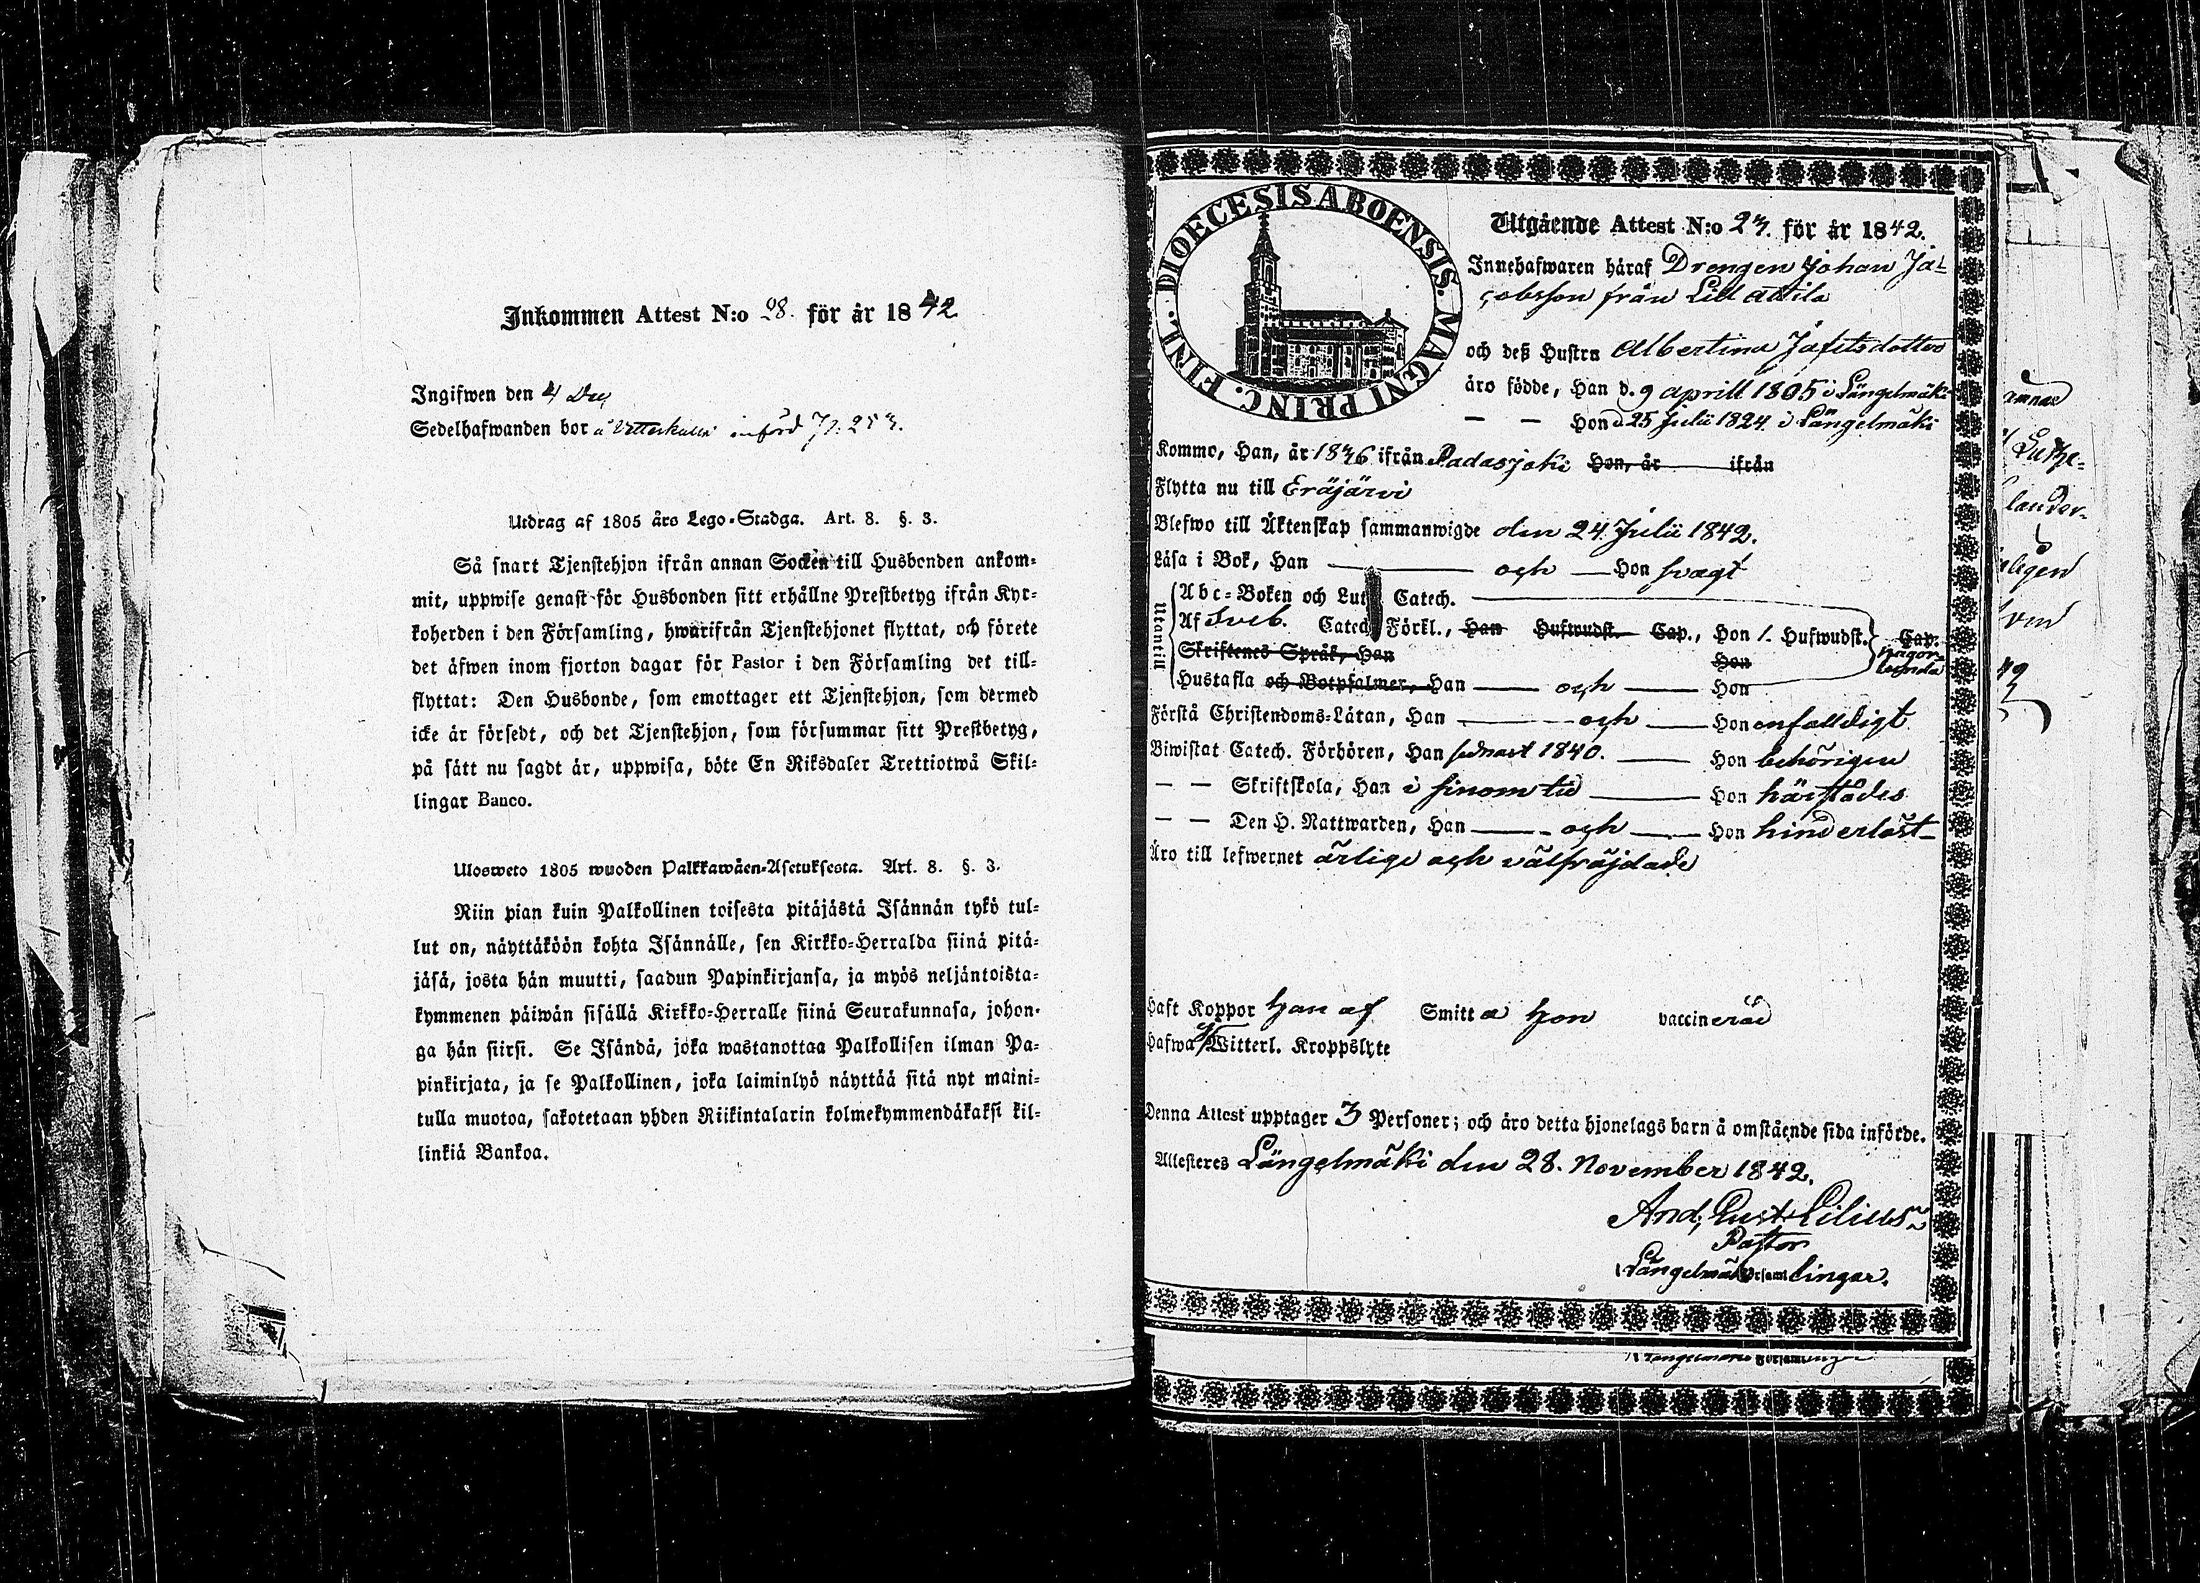 Inkommen Attest N:o 98. för år 1842
Ingifwen den 4 Dec
Sedelhafwanden bor å införd p. 253.
Utdrag af 1805 års Lego-Stadga. Art. 8. §. 3.
Så snart Tjenstehjon ifrån annan Socken till Husbonden ankom-
mit, uppwise genast för Husbonden sitt erhållne Prestbetyg ifrån Kyr-
koherden i den Församling, hwarifrån Tjenstehjonet flyttat, och förete
det äfwen inom fjorton dagar för Pastor i den Församling det till-
flyttat: Den Husbonde, som emottager ett Tjenstehjon, som dermed
icke är försedt, och det Tjenstehjon, som försummar sitt Prestbetyg,
på sätt nu sagdt är, uppwisa, böte En Riksdaler Trettiotwå Skil-
lingar Banco.
Ulosweto 1805 wuoden Palkkawäen-Asetuksesta. Art. 8. §. 3.
Niin pian kuin Palkollinen toisesta pitäjästä Isännän tykö tul-
lut on, näyttäköön kohta Isännälle, sen Kirkko-Herralda siinä pitä-
jäsä, josta hän muutti, saadun Papinkirjansa, ja myös neljäntoista-
kymmenen päiwän sisällä Kirkko-Herralle siinä Seurakunnasa, johon-
ga hän siirsi. Se Isändä, joka wastanottaa Palkollisen ilman Pa-
pinkirjata, ja se Palkollinen, joka laiminlyö näyttää sitä nyt maini-
tulla muotoa, sakotetaan yhden Riikintalarin kolmekymmendäkaksi kil-
linkiä Bankoa.
DIOECESIS ABOENSIS. MAGNI PRINC. FINL.
Utgående Attest N:o 27. för år 1842.
Innehafwaren häraf Drengen Johan Ja-
cobsson från Lill Attila
och deß Hustru Albertina Jafetsdotter
äro födde, Han d. 9 aprill 1805 i Längelmäki
— — Hon d 25 Julii 1824 i Längelmäki
Kommo, Han, år 1836 ifrån Padasjoki Hon, år ifrån
Flytta nu till Eräjärvi
Blefwo till Äktenskap sammanwigde den 24 Julii 1842.
Läsa i Bok, Han — och — Hon svagt
Utantill
Abc-Boken och Lut Catech.
Af Sveb. Catech Förkl., Han Hufwudst. Cap., Hon 1. Hufwudst. Cap.
Skriftenes Språk, Han Hon någor-
lunda
Hustafla och Botpsalmer, Han — och — Hon
Förstå Christendoms-Läran, Han — och — Hon enfalldigt
Biwistat Catech. Förhören, Han sednast 1840. — Hon behörigen
— — Skriftskola, Han i sinom tid — Hon härstädes
— — Den H. Nattwarden, Han — och — Hon hinderlöst
Äro till lefwernet ärlige och välfräjdade
Haft Koppor Han af Smitta Hon vaccinerad
Hafwa ej Witterl. Kroppslyte
Denna Attest upptager 3 Personer; och äro detta hjonelags barn å omstående sida införde.
Attesteres Längelmäki den 28. November 1842.
And. Gust. Lilius
Pastor
i Längelmäki Församlingar.